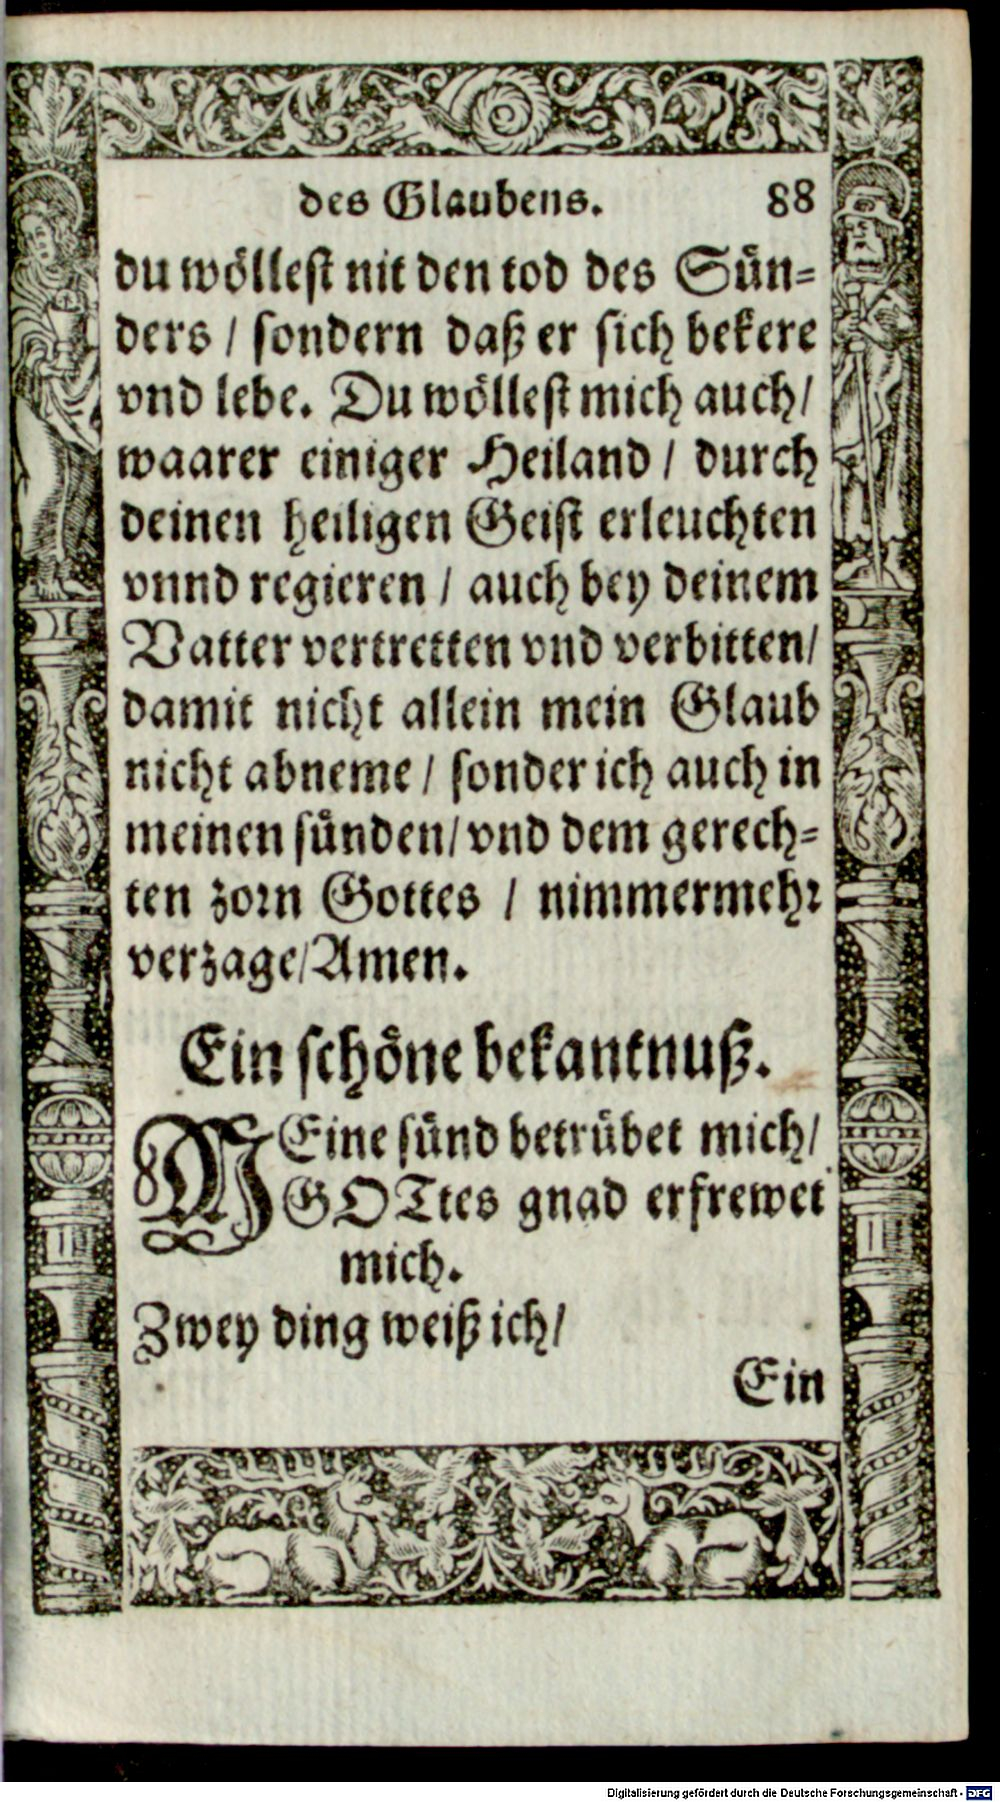 des Glaubens. 88
du wöllest nit den tod des Sün-
ders / sondern daß er sich bekere
vnd lebe. Du wöllest mich auch/
waarer einiger Heiland / durch
deinen heiligen Geist erleuchten
vnnd regieren / auch bey deinem
Vatter vertretten vnd verbitten/
damit nicht allein mein Glaub
nicht abneme / sonder ich auch in
meinen sünden/ vnd dem gerech-
ten zorn Gottes / nimmermehr
verzage/Amen.
Ein schöne bekantnuß.
MEine sünd betrübet mich/
GOTtes gnad erfrewet
mich.
Zwey ding weiß ich/
Ein
Digitalisierung gefördert durch die Deutsche Forschungsgemeinschaft - DFG